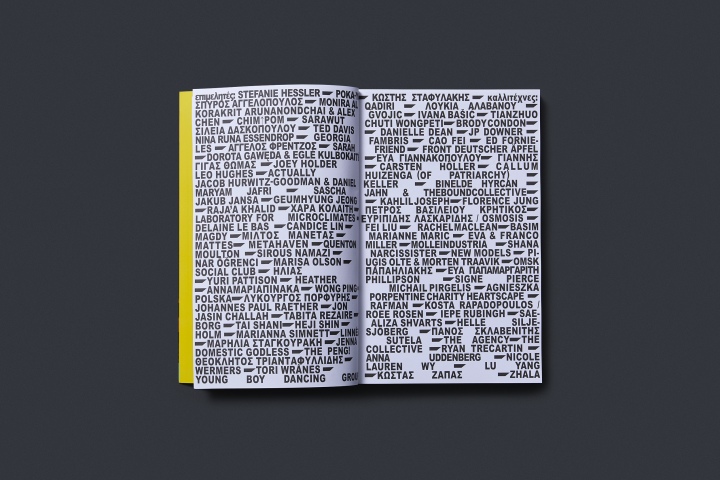 επιμελητές: STEFANIE HESSLER POKA-
ΣΠΥΡΟΣ ΑΓΓΕΛΟΠΟΥΛΟΣ MONIRA AL
KORAKRIT ARUNANONDCHAI & ALEX
CHEN CHIM↑POM SARAWUT
ΣΙΛΕΙΑ ΔΑΣΚΟΠΟΥΛΟΥ TED DAVIS
NINA RUNA ESSENDROP GEORGIA
LES ΑΓΓΕΛΟΣ ΦΡΕΝΤΖΟΣ SARAH
DOROTA GAWĘDA & EGLĖ KULBOKAITĖ
ΓΙΓΑΣ ΘΩΜΑΣ JOEY HOLDER
LEO HUGHES ACTUALLY
JACOB HURWITZ-GOODMAN & DANIEL
MARYAM JAFRI SASCHA
JAKUB JANSA GEUMHYUNG JEONG
RAJA'A KHALID ΧΑΡΑ ΚΟΛΑΙΤΗ
LABORATORY FOR MICROCLIMATES
DELAINE LE BAS CANDICE LIN
MAGDY ΜΙΛΤΟΣ ΜΑΝΕΤΑΣ
MATTES METAHAVEN QUENTON
MOULTON SIROUS NAMAZI
NAR ÖGRENCI MARISA OLSON
SOCIAL CLUB ΗΛΙΑΣ
YURI PATTISON HEATHER
ΑΝΝΑΜΑΡΙΑΠΙΝΑΚΑ WONG PING
POLSKA ΛΥΚΟΥΡΓΟΣ ΠΟΡΦΥΡΗΣ
JOHANNES PAUL RAETHER JON
JASIN CHALLAH TABITA REZAIRE
BORG TAI SHANI HEJI SHIN
HOLM MARIANNA SIMNETT LINNE
ΜΑΡΗΛΙΑ ΣΤΑΓΚΟΥΡΑΚΗ JENNA
DOMESTIC GODLESS THE PENGI
ΘΕΟΚΛΗΤΟΣ ΤΡΙΑΝΤΑΦΥΛΛΙΔΗΣ
WERMERS TORI WRÅNES
YOUNG BOY DANCING GROU
ΚΩΣΤΗΣ ΣΤΑΦΥΛΑΚΗΣ καλλιτέχνες:
QADIRI ΛΟΥΚΙΑ ΑΛΑΒΑΝΟΥ
GVOJIC IVANA BAŠIC TIANZHUO
CHUTI WONGPETI BRODYCONDON
DANIELLE DEAN JP DOWNER
FAMBRIS CAO FEI ED FORNIE-
FRIEND FRONT DEUTSCHER ÄPFEL
ΕΥΑ ΓΙΑΝΝΑΚΟΠΟΥΛΟΥ ΓΙΑΝΝΗΣ
CARSTEN HÖLLER CALLUM
HUIZENGA (OF PATRIARCHY)
KELLER BINELDE HYRCAN
JAHN & THEBOUNDCOLLECTIVE
KAHLIL JOSEPH FLORENCE JUNG
ΠΕΤΡΟΣ ΒΑΣΙΛΕΙΟΥ ΚΡΗΤΙΚΟΣ
ΕΥΡΙΠΙΔΗΣ ΛΑΣΚΑΡΙΔΗΣ / OSMOSIS
FEI LIU RACHELMACLEAN BASIM
MARIANNE MARIC EVA & FRANCO
MILLER MOLLEINDUSTRIA SHANA
NARCISSISTER NEW MODELS PI-
UGIS OLTE & MORTEN TRAAVIK OMSK
ΠΑΠΑΗΛΙΑΚΗΣ ΕΥΑ ΠΑΠΑΜΑΡΓΑΡΙΤΗ
PHILLIPSON SIGNE PIERCE
MICHAIL PIRGELIS AGNIESZKA
PORPENTINE CHARITY HEARTSCAPE
RAFMAN KOSTA RAPADOPOULOS /
ROEE ROSEN IEPE RUBINGH SAE-
ALIZA SHVARTS HELLE SILJE-
SJÖBERG ΠΑΝΟΣ ΣΚΛΑΒΕΝΙΤΗΣ
SUTELA THE AGENCY THE
COLLECTIVE RYAN TRECARTIN
ANNA UDDENBERG NICOLE
LAUREN WY LU YANG
ΚΩΣΤΑΣ ΖΑΠΑΣ ZHALA